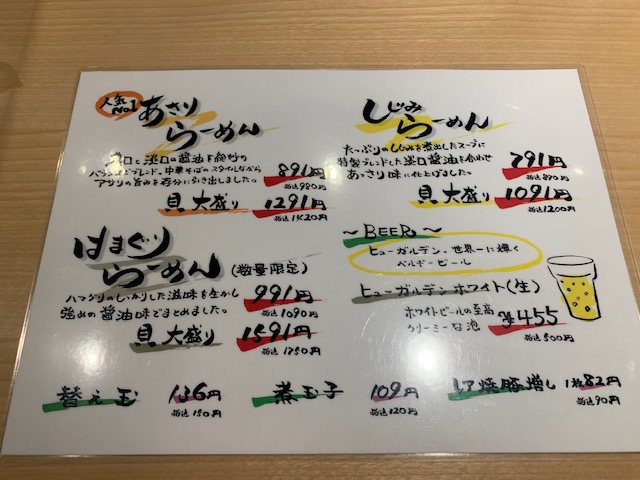 人気No.1
あさり
らーめん
濃口と淡口の醤油を絶妙の
バランスでブレンド。中華そばのスタイルながら
アサリの旨みを存分に引き出しました。
891円
税込980円
貝大盛り 1291円
税込1420円
しじみ
らーめん
たっぷりのしじみを煮出したスープに
特製ブレンドした淡口醤油を合わせ
あっさり味に仕上げました。
791円
税込870円
貝大盛り 1091円
税込1200円
はまぐり
らーめん (数量限定)
ハマグリのしっかりした滋味を生かし
強めの醤油味でまとめました。
991円
税込1090円
貝大盛り 1591円
税込1750円
～BEER～
ヒューガルデン、世界一に輝く
ベルギービール
ヒューガルデンホワイト(生)
ホワイトビールの至高
クリーミーな泡
¥455
税込500円
替え玉 136円
税込150円
煮玉子 109円
税込120円
レア焼豚増し 1枚82円
税込90円